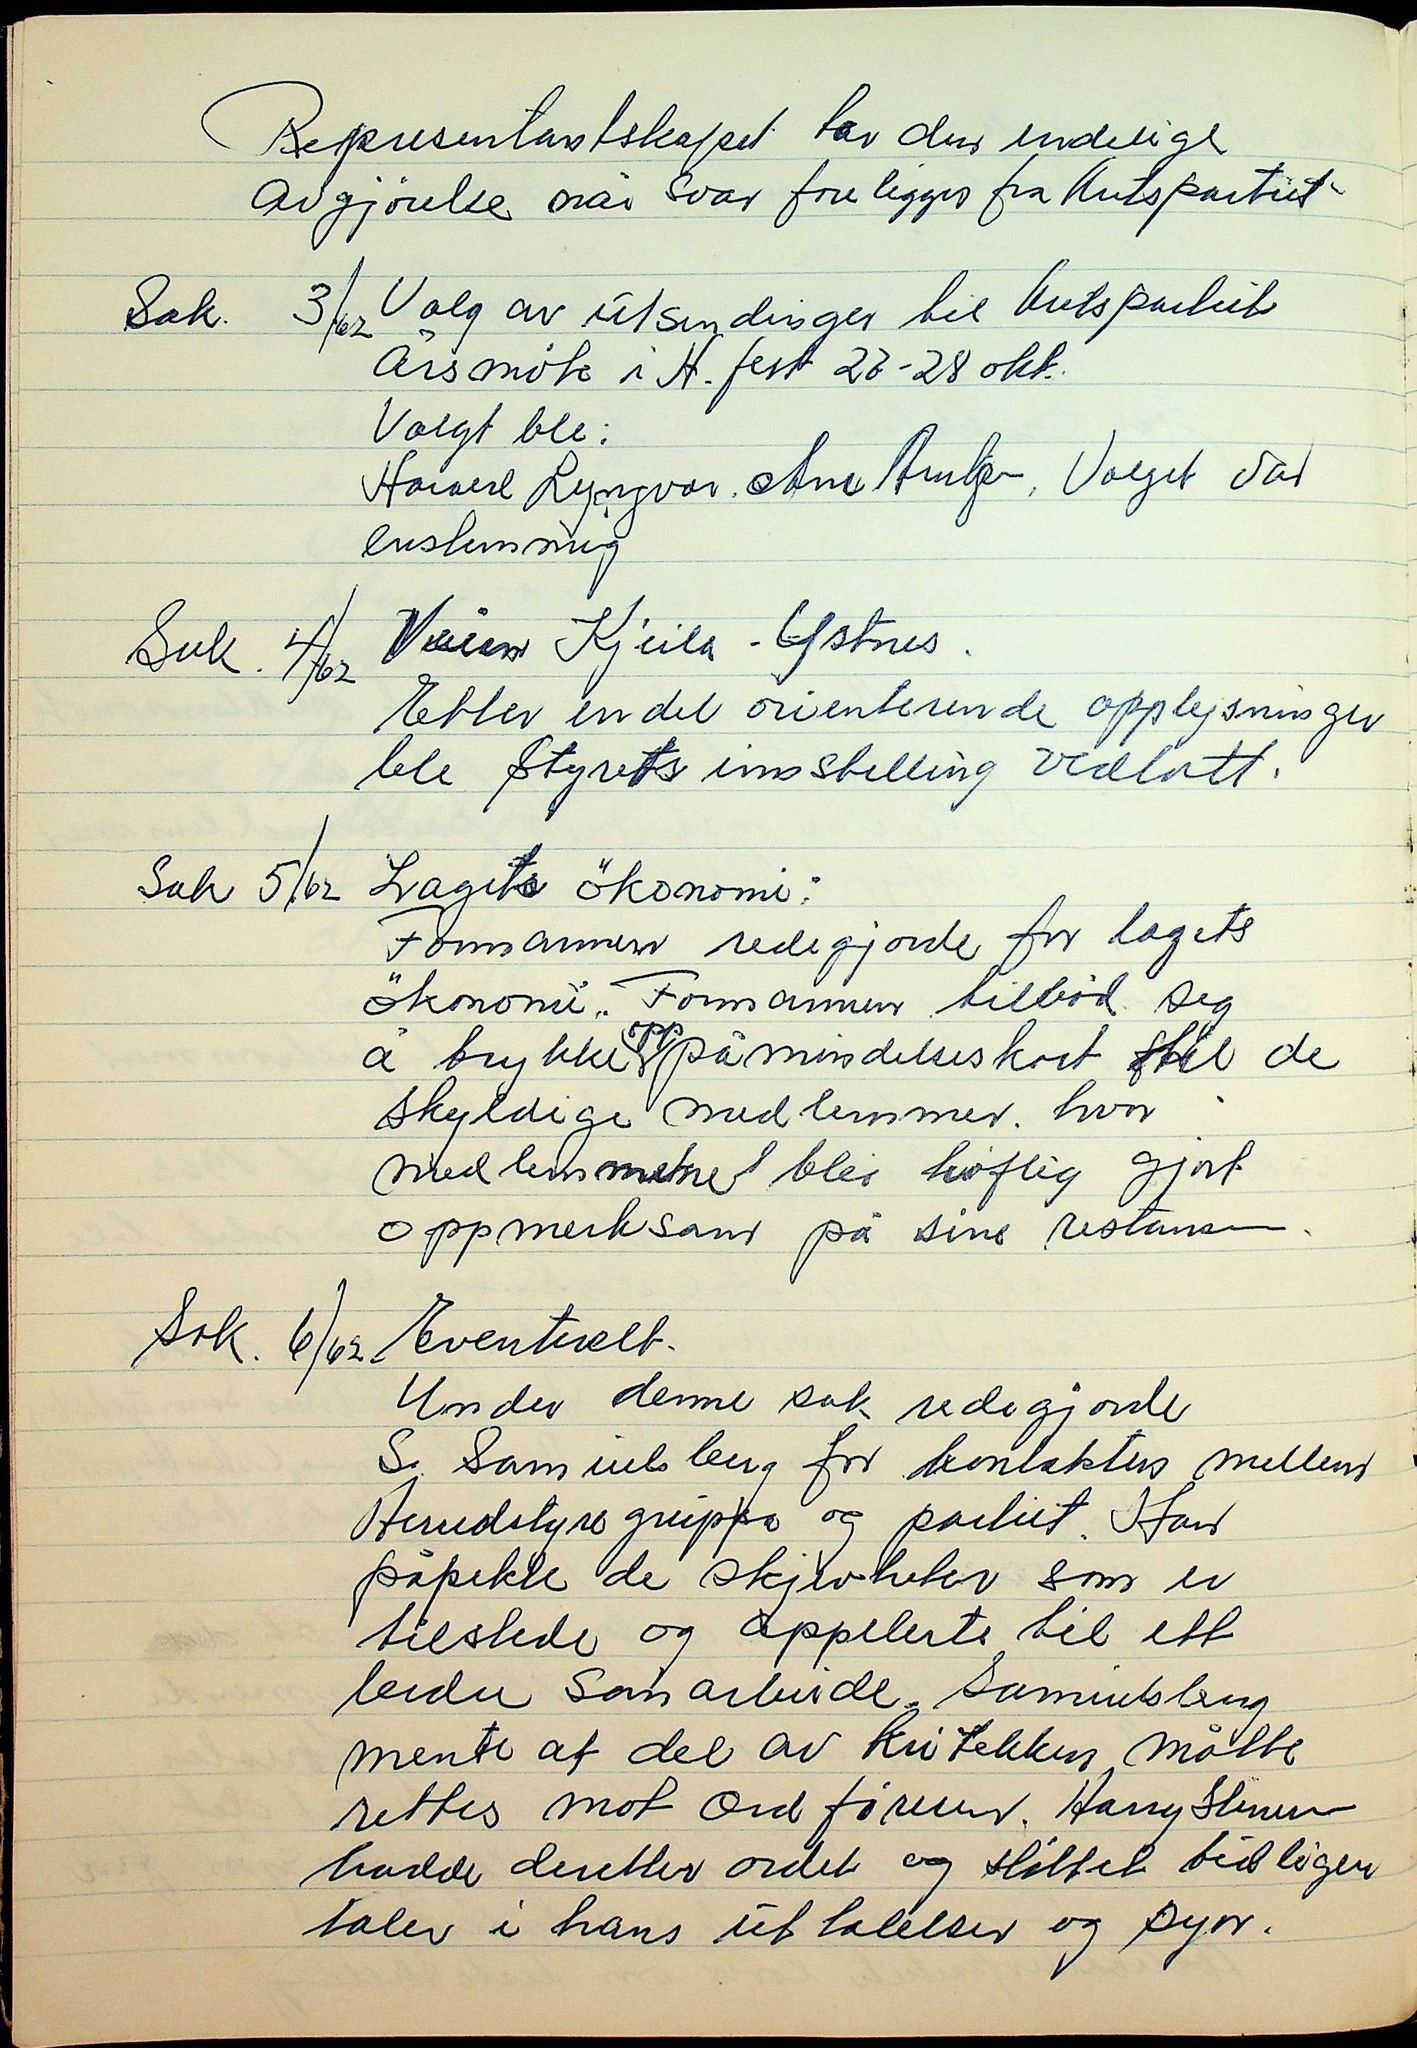 Representantskapet tar den endelige
avgjörelse når svar foreligger fra Amtspartiet
Sak. 3/62 Valg av utsendinger til Amtspartiets
Årsmöte i H. fest 26-28 okt.
Valgt ble:
Harald Lyngvar. Arne Valget var
enstemmig
Sak. 4/62 Veien Kjeila - Ystnes.
Etter endel orienterende opplysninger
ble styrets innstilling vedtatt.
Sak 5/62 Lagets ökonomi:
Formannen redegjorde for lagets
ökonomi. Formannen tilböd seg
å trykke opp påmindelseskort til de
skyldige medlemmer. hvor
medlemmene blei höflig gjort
oppmerksam på sine restanser.
Sak. 6/62. Eventuelt.
Under denne sak redegjorde
S. Samuelsberg for kontakten mellem
Herredstyregruppa og partiet. Han
påpekte de skjevheter som er
tilstede og appelerte til ett
bedre samarbeide. Samuelsberg
mente at del av kritekken måtte
rettes mot ordföreren. Harry
hadde deretter ordet og stöttet tidligere
taler i hans uttalelser og syn.